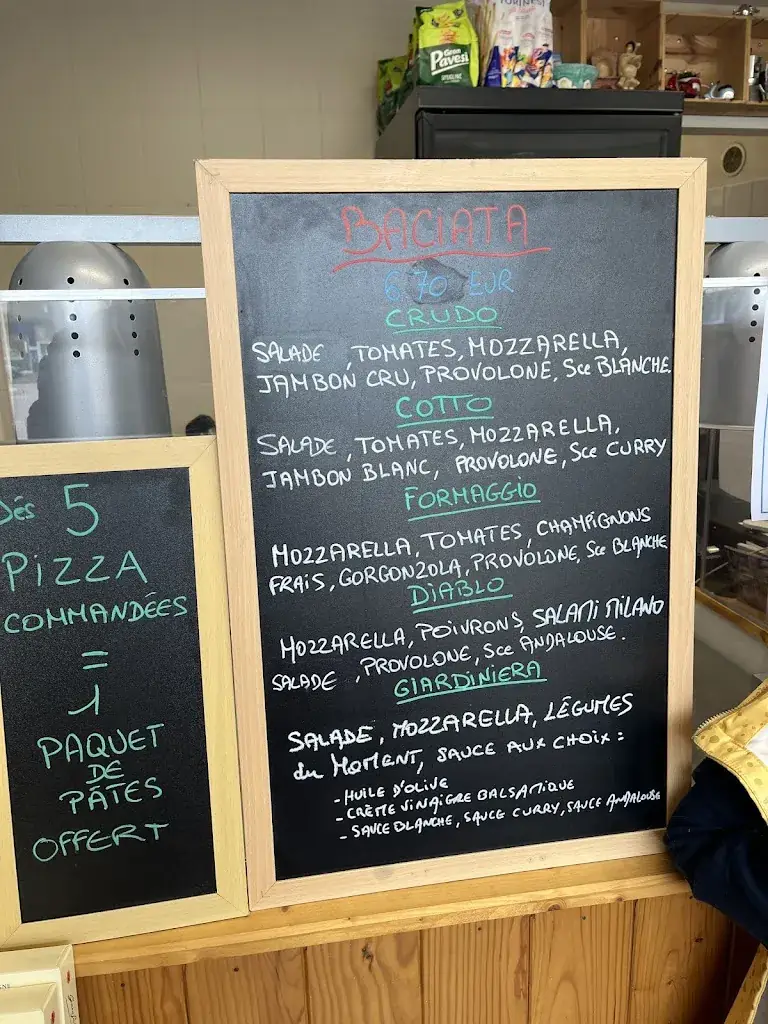 Gran
Pavesi
BACIATA
6.70 EUR
CRUDO
SALADE, TOMATES, MOZZARELLA,
JAMBON CRU, PROVOLONE, Sce BLANCHE
COTTO
SALADE, TOMATES, MOZZARELLA,
JAMBON BLANC, PROVOLONE, Sce CURRY
FORMAGGIO
MOZZARELLA, TOMATES, CHAMPIGNONS
FRAIS, GORGONZOLA, PROVOLONE, Sce BLANCHE
DIABLO
MOZZARELLA, POIVRONS, SALAMI MILANO
SALADE, PROVOLONE, Sce ANDALOUSE.
GIARDINIERA
SALADE, MOZZARELLA, LÉGUMES
du MOMENT, SAUCE AUX CHOIX :
- HUILE D'OLIVE
- CRÈME VINAIGRE BALSAMIQUE
- SAUCE BLANCHE, SAUCE CURRY, SAUCE ANDALOUSE
Dés 5
PIZZA
COMMANDÉES
=
1
PAQUET
DE
PÂTES
OFFERT